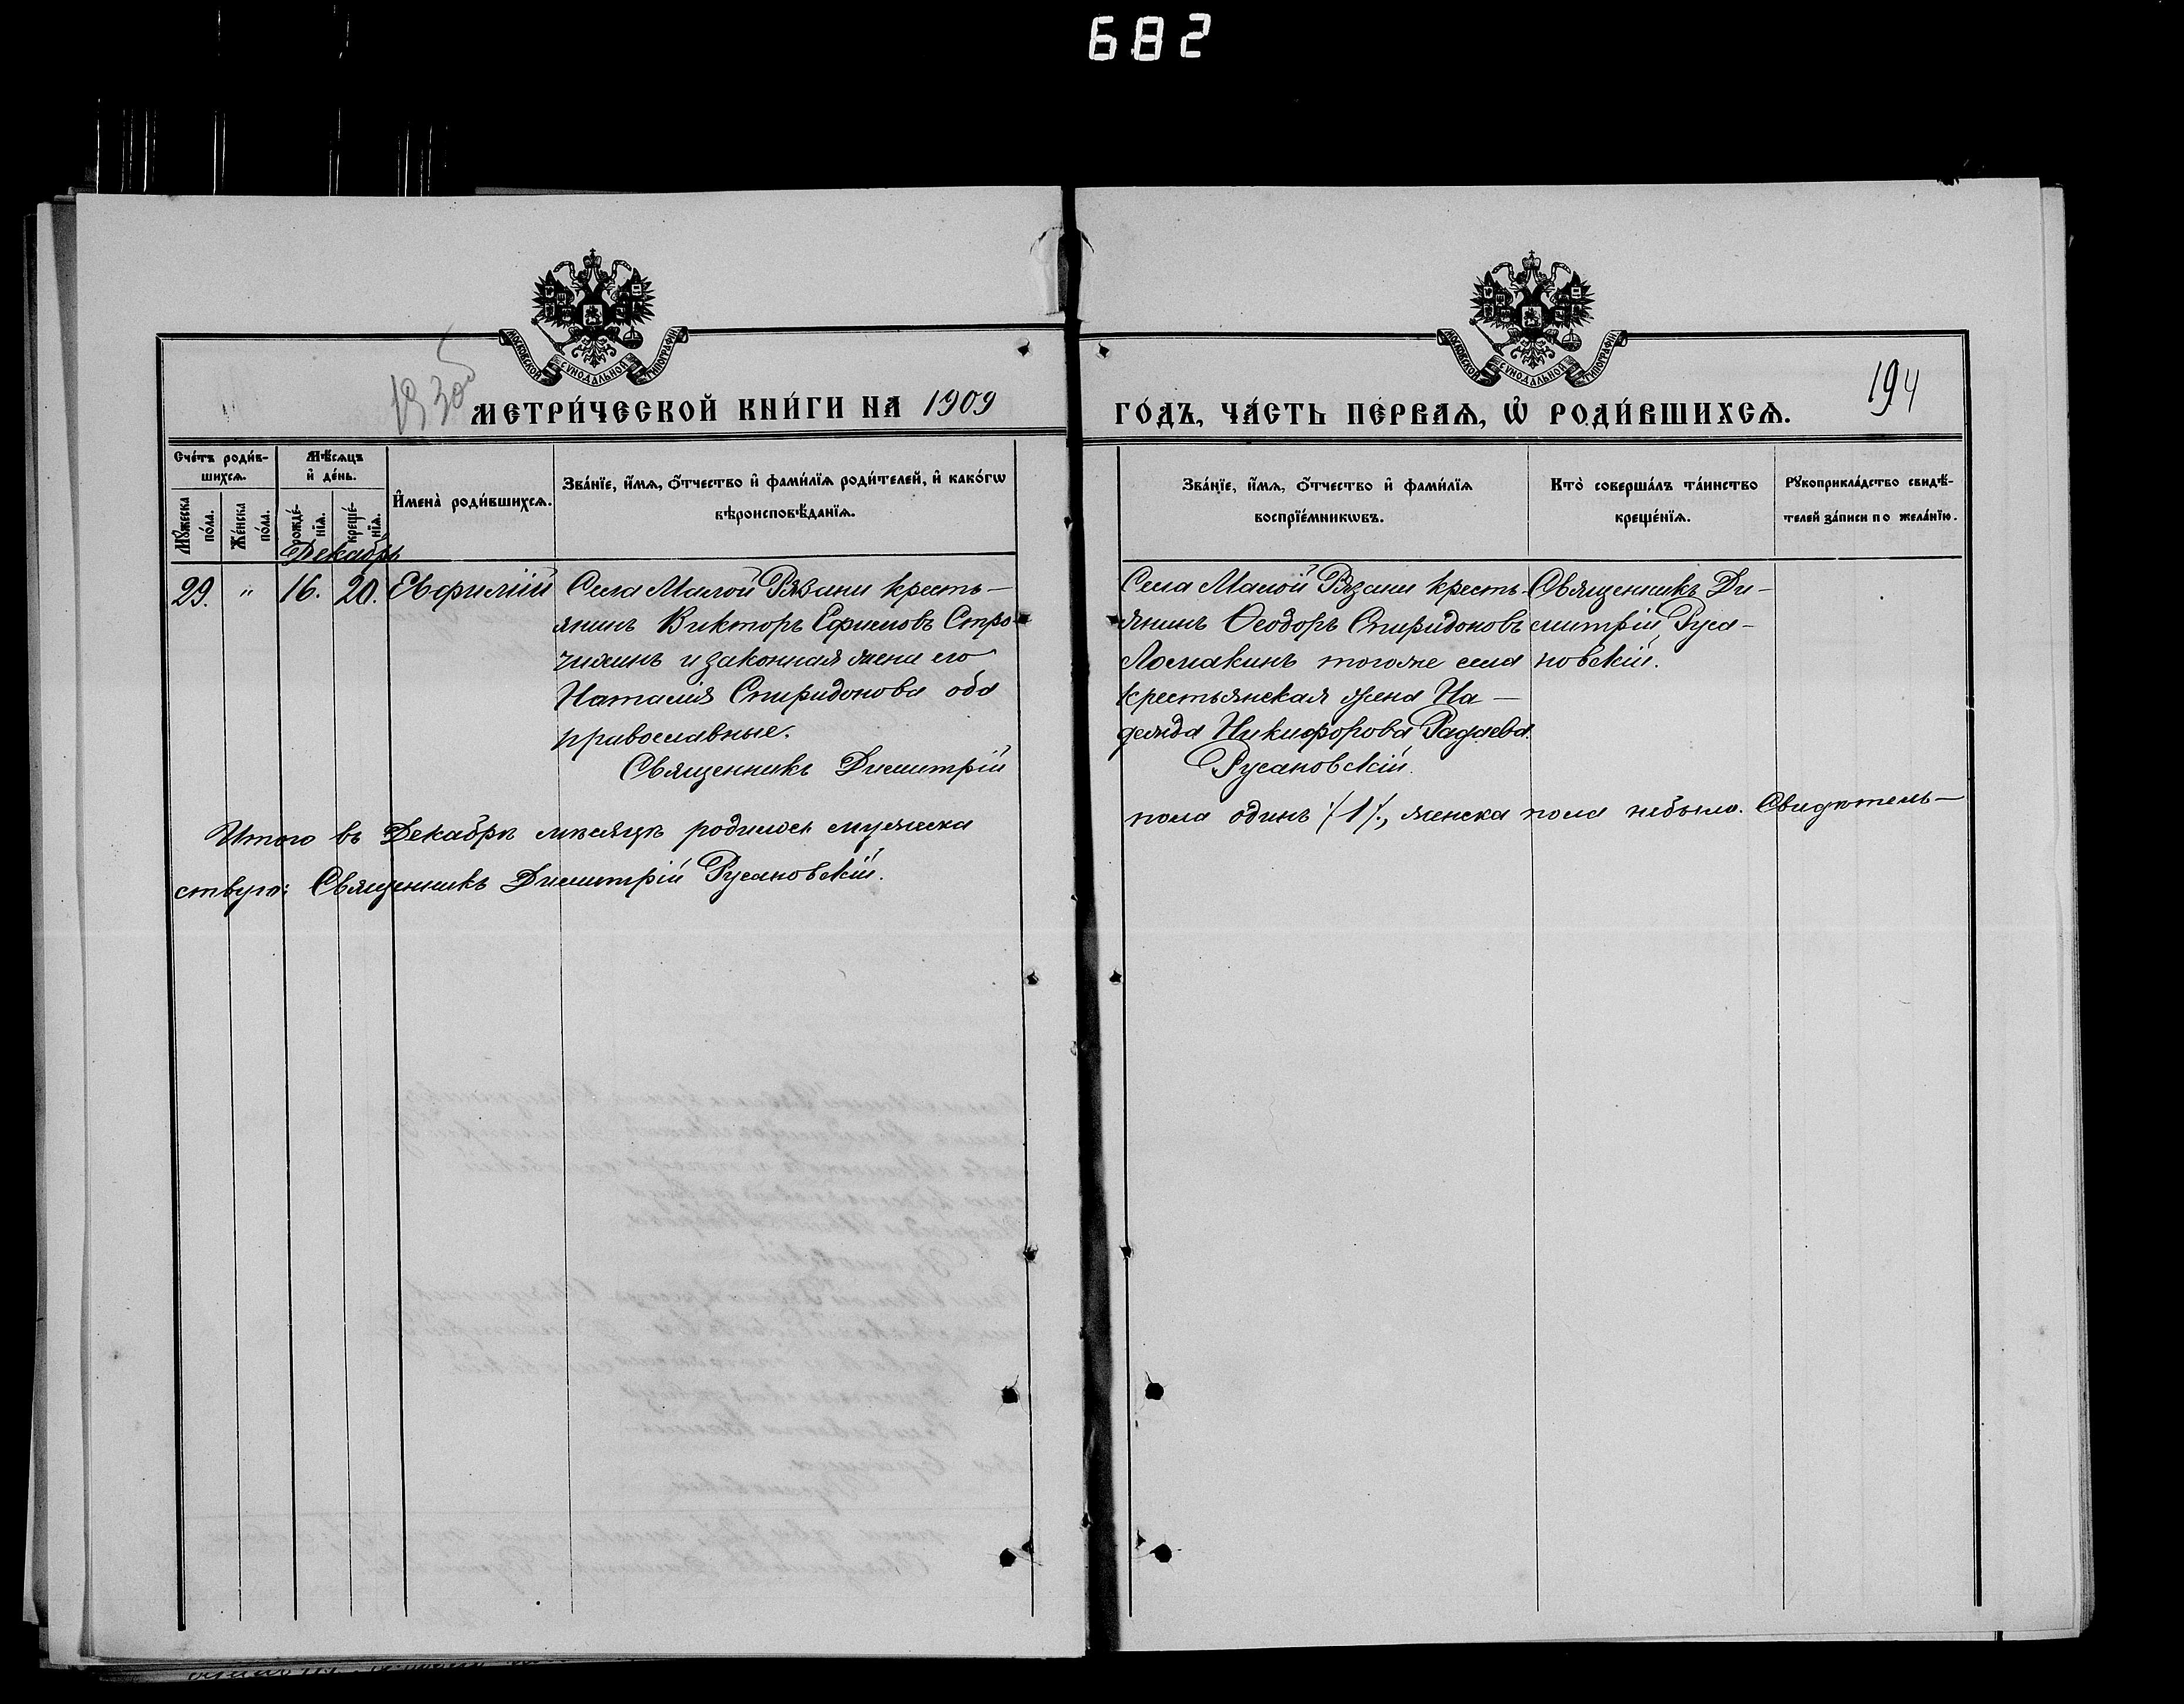 682
МОСКОВСКОЙ СѴНОДАЛЬНОЙ ТИПОГРАФІИ
МОСКОВСКОЙ СѴНОДАЛЬНОЙ ТИПОГРАФІИ
194
МЕТРИ́ЧЕСКОЙ КНИ́ГИ НА 1909
ГО́ДЪ, ЧА́СТЬ ПЕ́РВАѦ, Ѡ҆ РОДИ́ВШИХСѦ.
Сче́тъ роди́в-
шихсѧ.
Мѣ́сѧцъ
и҆ де́нь.
Мꙋ́жеска
по́ла.
Же́нска
по́ла.
рожде́-
нїѧ.
креще́-
нїѧ.
И҆мена̀ роди́вшихсѧ.
Зва́нїе, и҆́мѧ, ѻ҆́тчество и҆ фами́лїѧ роди́телей, и҆ како́гѡ
вѣроисповѣ́данїѧ.
Зва́нїе, и҆́мѧ, ѻ҆́тчество и҆ фами́лїѧ
воспрїе́мникѡвъ.
Кто̀ соверша́лъ та́инство
креще́нїѧ.
Рꙋкоприкла́дство свидѣ́-
телей за́писи по жела́нїю.
Декабрь
29. " 16. 20. Евфимій
Села Малой Рязани кресть-
янинъ Викторъ Ефимовъ Стро-
чилинъ и законная жена его
Наталія Спиридонова оба
православные.
Священникъ Димитрій
Села Малой Рязани кресть-
янинъ Ѳеодоръ Спиридоновъ
Ломакинъ тогоже села
крестьянская жена На-
дежда Никифорова Радаева.
Русановскій.
Священникъ Ди-
митрій Руса-
новскій.
Итого въ Декабрѣ мѣсяцѣ родилось мужеска
пола одинъ /1/., женска пола небыло. Свидѣтель-
ствую: Священникъ Димитрій Русановскій.